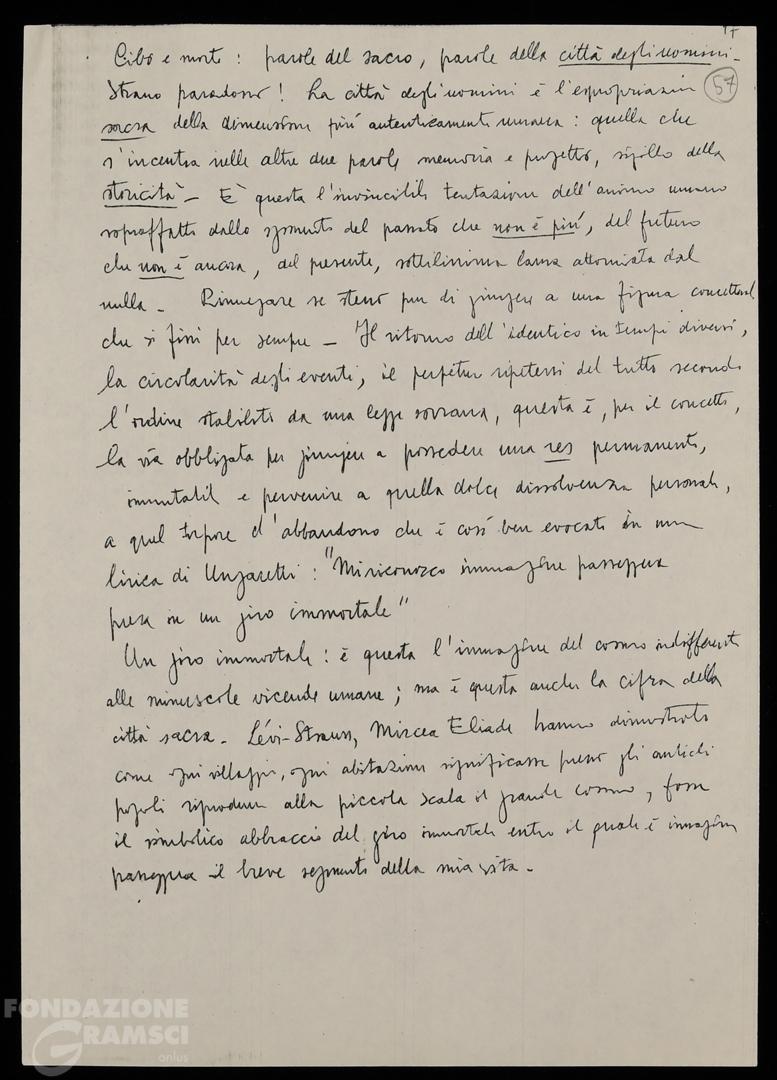 17
57
Cibo e morte : parole del sacro, parole della città degli uomini -
Strano paradosso ! La città degli uomini è l'espropriazione
sacra della dimensione più autenticamente umana : quella che
s'incentra nelle altre due parole memoria e progetto, sigillo della
storicità - È questa l'invincibile tentazione dell'animo umano
sopraffatto dallo sgomento del passato che non è più, del futuro
che non è ancora, del presente, sottilissima lama attorniata dal
nulla - Rinnegare se stesso pur di giungere a una figura concettuale
che si fissi per sempre - Il ritorno dell'identico in tempi diversi,
la circolarità degli eventi, il perpetuo ripetersi del tutto secondo
l'ordine stabilito da una legge sovrana, questa è, per il concetto,
la via obbligata per giungere a possedere una res permanente,
immutabile e pervenire a quella dolce dissolvenza personale,
a quel torpore d'abbandono che è così ben evocato in una
lirica di Ungaretti : "Mi riconosco immagine passeggera
presa in un giro immortale"
Un giro immortale : è questa l'immagine del cosmo indifferente
alle minuscole vicende umane ; ma è questa anche la cifra della
città sacra - Lévi-Strauss, Mircea Eliade hanno dimostrato
come ogni villaggio, ogni abitazione significasse presso gli antichi
popoli riprodurre alla piccola scala il grande cosmo, fosse
il simbolico abbraccio del giro immortale entro il quale è immagine
passeggera il breve segmento della mia vita -
FONDAZIONE
GRAMSCI
onlus